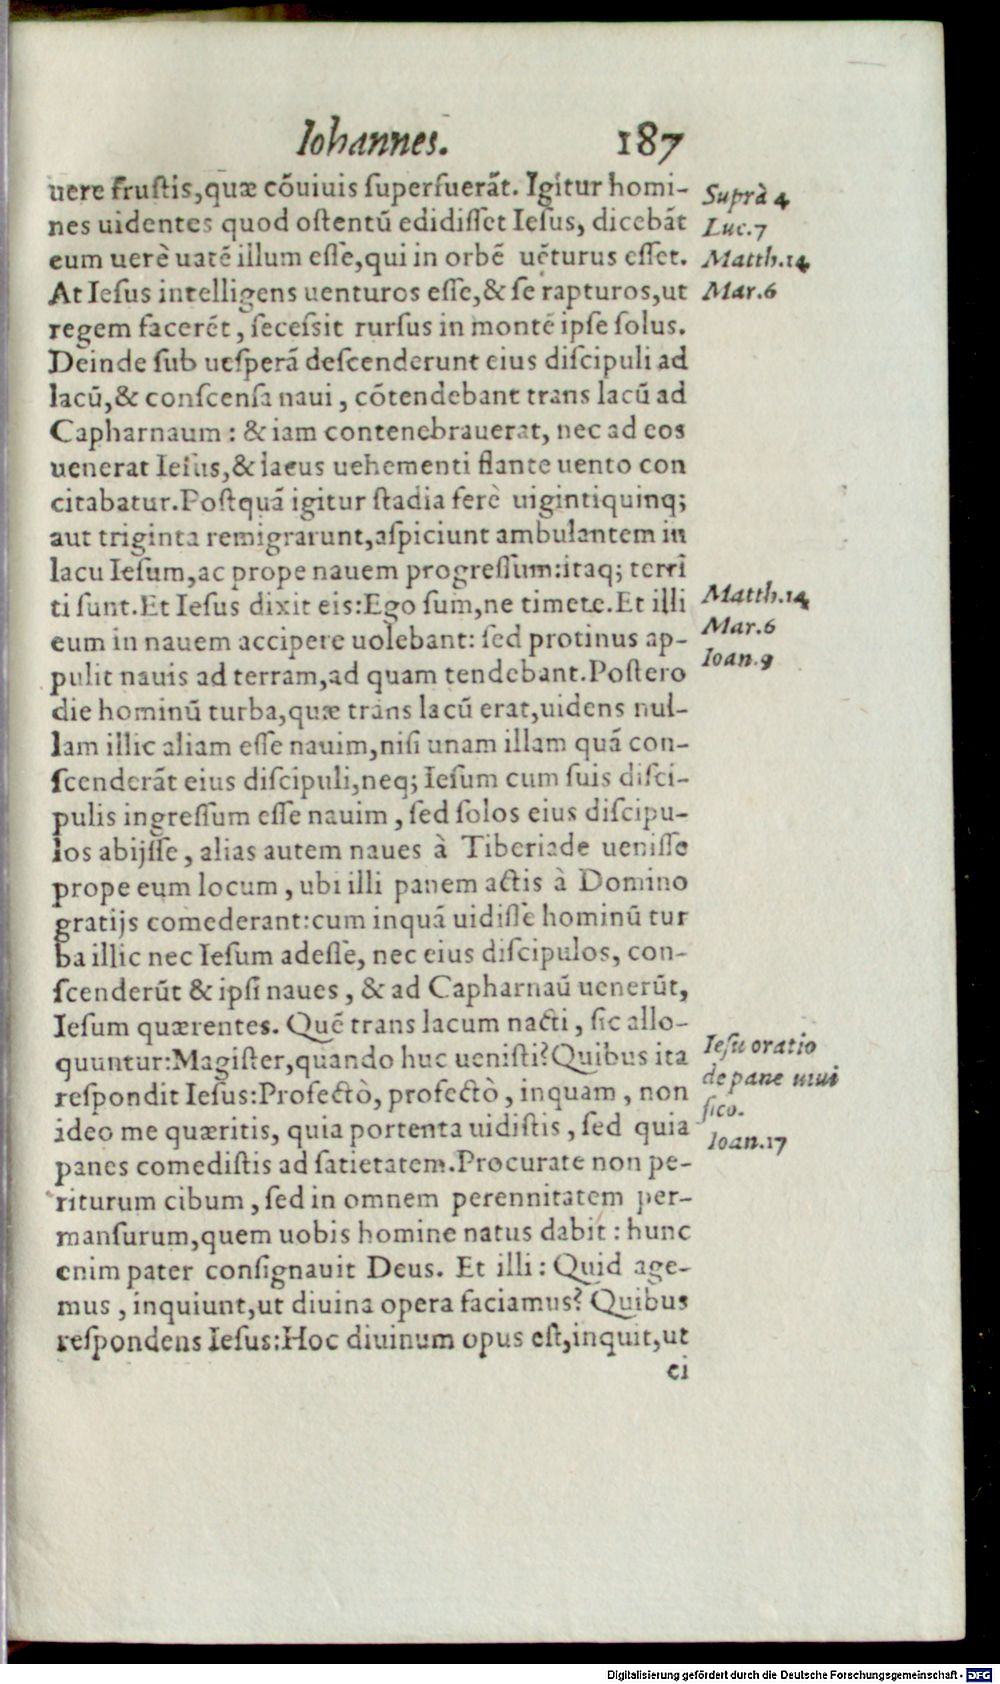 Iohannes. 187
uere frustis,quæ cōuiuis superfuerāt. Igitur homi-
nes uidentes quod ostentū edidisset Iesus, dicebāt
eum uerè uatē illum esse,qui in orbē uēturus esset.
At Iesus intelligens uenturos esse,& se rapturos,ut
regem facerēt, secessit rursus in montē ipse solus.
Deinde sub uesperā descenderunt eius discipuli ad
lacū,& conscensa naui, cōtendebant trans lacū ad
Capharnaum: & iam contenebrauerat, nec ad eos
uenerat Iesus,& lacus uehementi flante uento con
citabatur.Postquā igitur stadia ferè uigintiquinq;
aut triginta remigrarunt,aspiciunt ambulantem in
lacu Iesum,ac prope nauem progressum:itaq; terri
ti sunt.Et Iesus dixit eis:Ego sum,ne timete.Et illi
eum in nauem accipere uolebant: sed protinus ap-
pulit nauis ad terram,ad quam tendebant.Postero
die hominū turba,quæ trans lacū erat,uidens nul-
lam illic aliam esse nauim,nisi unam illam quā con-
scenderāt eius discipuli,neq; Iesum cum suis disci-
pulis ingressum esse nauim, sed solos eius discipu-
los abijsse, alias autem naues à Tiberiade uenisse
prope eum locum, ubi illi panem actis à Domino
gratijs comederant:cum inquā uidisse hominū tur
ba illic nec Iesum adesse, nec eius discipulos, con-
scenderūt & ipsi naues, & ad Capharnaū uenerūt,
Iesum quærentes. Quē trans lacum nacti, sic allo-
quuntur:Magister,quando huc uenisti?Quibus ita
respondit Iesus:Profectò, profectò, inquam, non
ideo me quæritis, quia portenta uidistis, sed quia
panes comedistis ad satietatem.Procurate non pe-
riturum cibum, sed in omnem perennitatem per-
mansurum,quem uobis homine natus dabit: hunc
enim pater consignauit Deus. Et illi: Quid age-
mus, inquiunt,ut diuina opera faciamus? Quibus
respondens Iesus:Hoc diuinum opus est,inquit,ut
ci
Suprà 4
Luc.7
Matth.14
Mar.6
Matth.14
Mar.6
Ioan.9
Iesu oratio
de pane uiui
fico.
Ioan.17
Digitalisierung gefördert durch die Deutsche Forschungsgemeinschaft - DFG